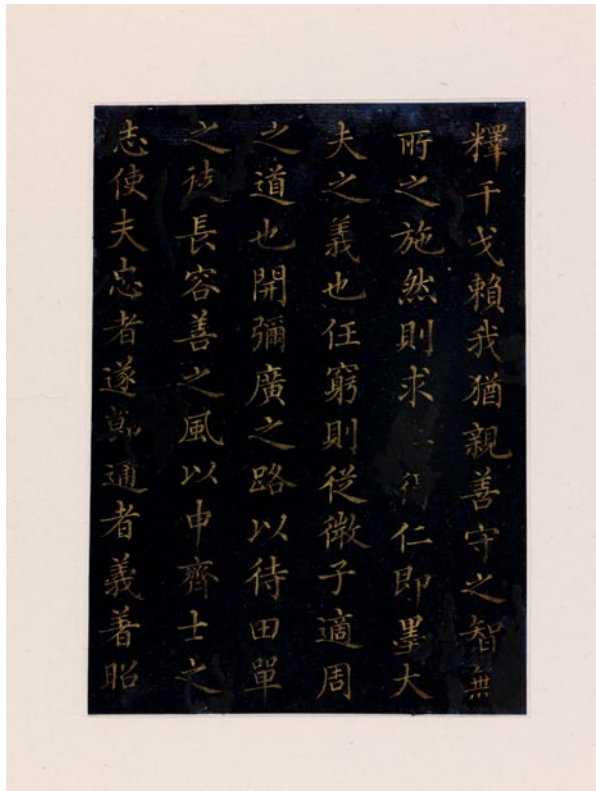 釋干戈賴我猶親善守之智無
所之施然則求得仁即墨大
夫之義也任窮則從微子適周
之道也開彌廣之路以待田單
之徒長容善之風以申齊士之
志使夫忠者遂節通者義著昭